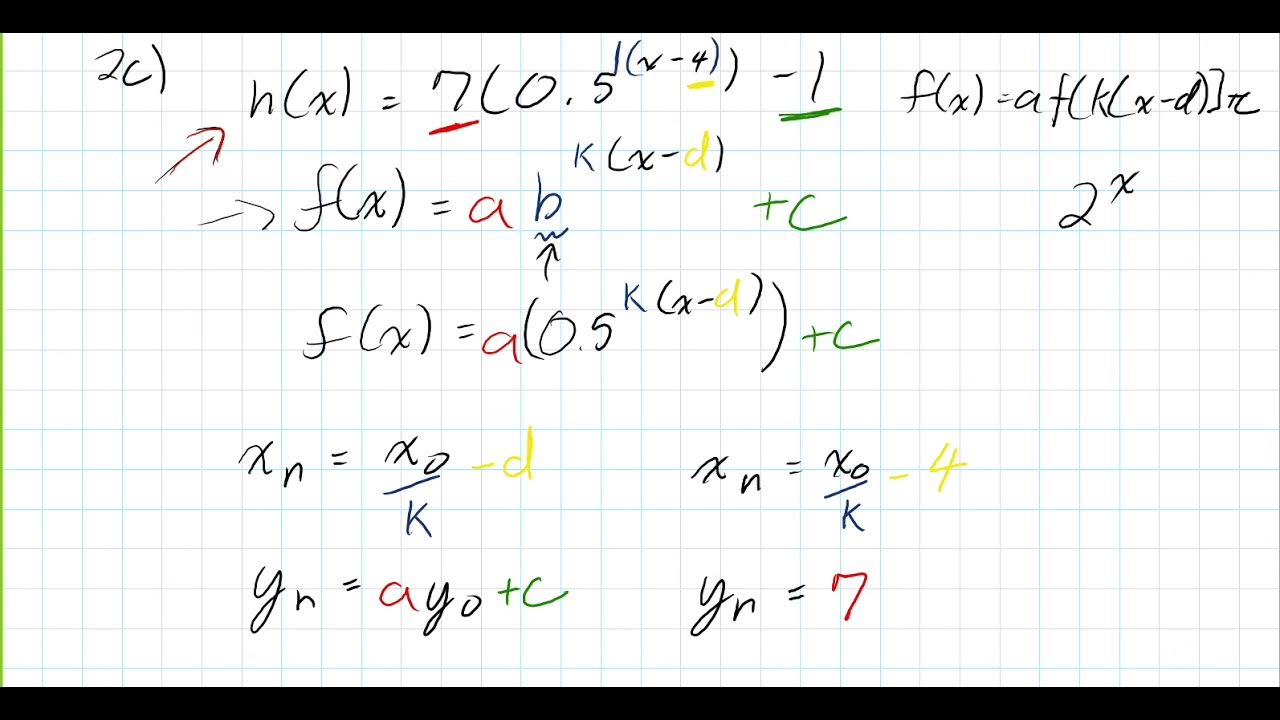 2c) h(x) = 7(0.5^1(x-4)) -1
f(x)=af[k(x-d)]+c
→ f(x) = a b^k(x-d) +c
2^x
f(x) = a(0.5^k(x-d)) +c
x_n = x_0/k - d
x_n = x_0/k - 4
y_n = ay_0 +c
y_n = 7